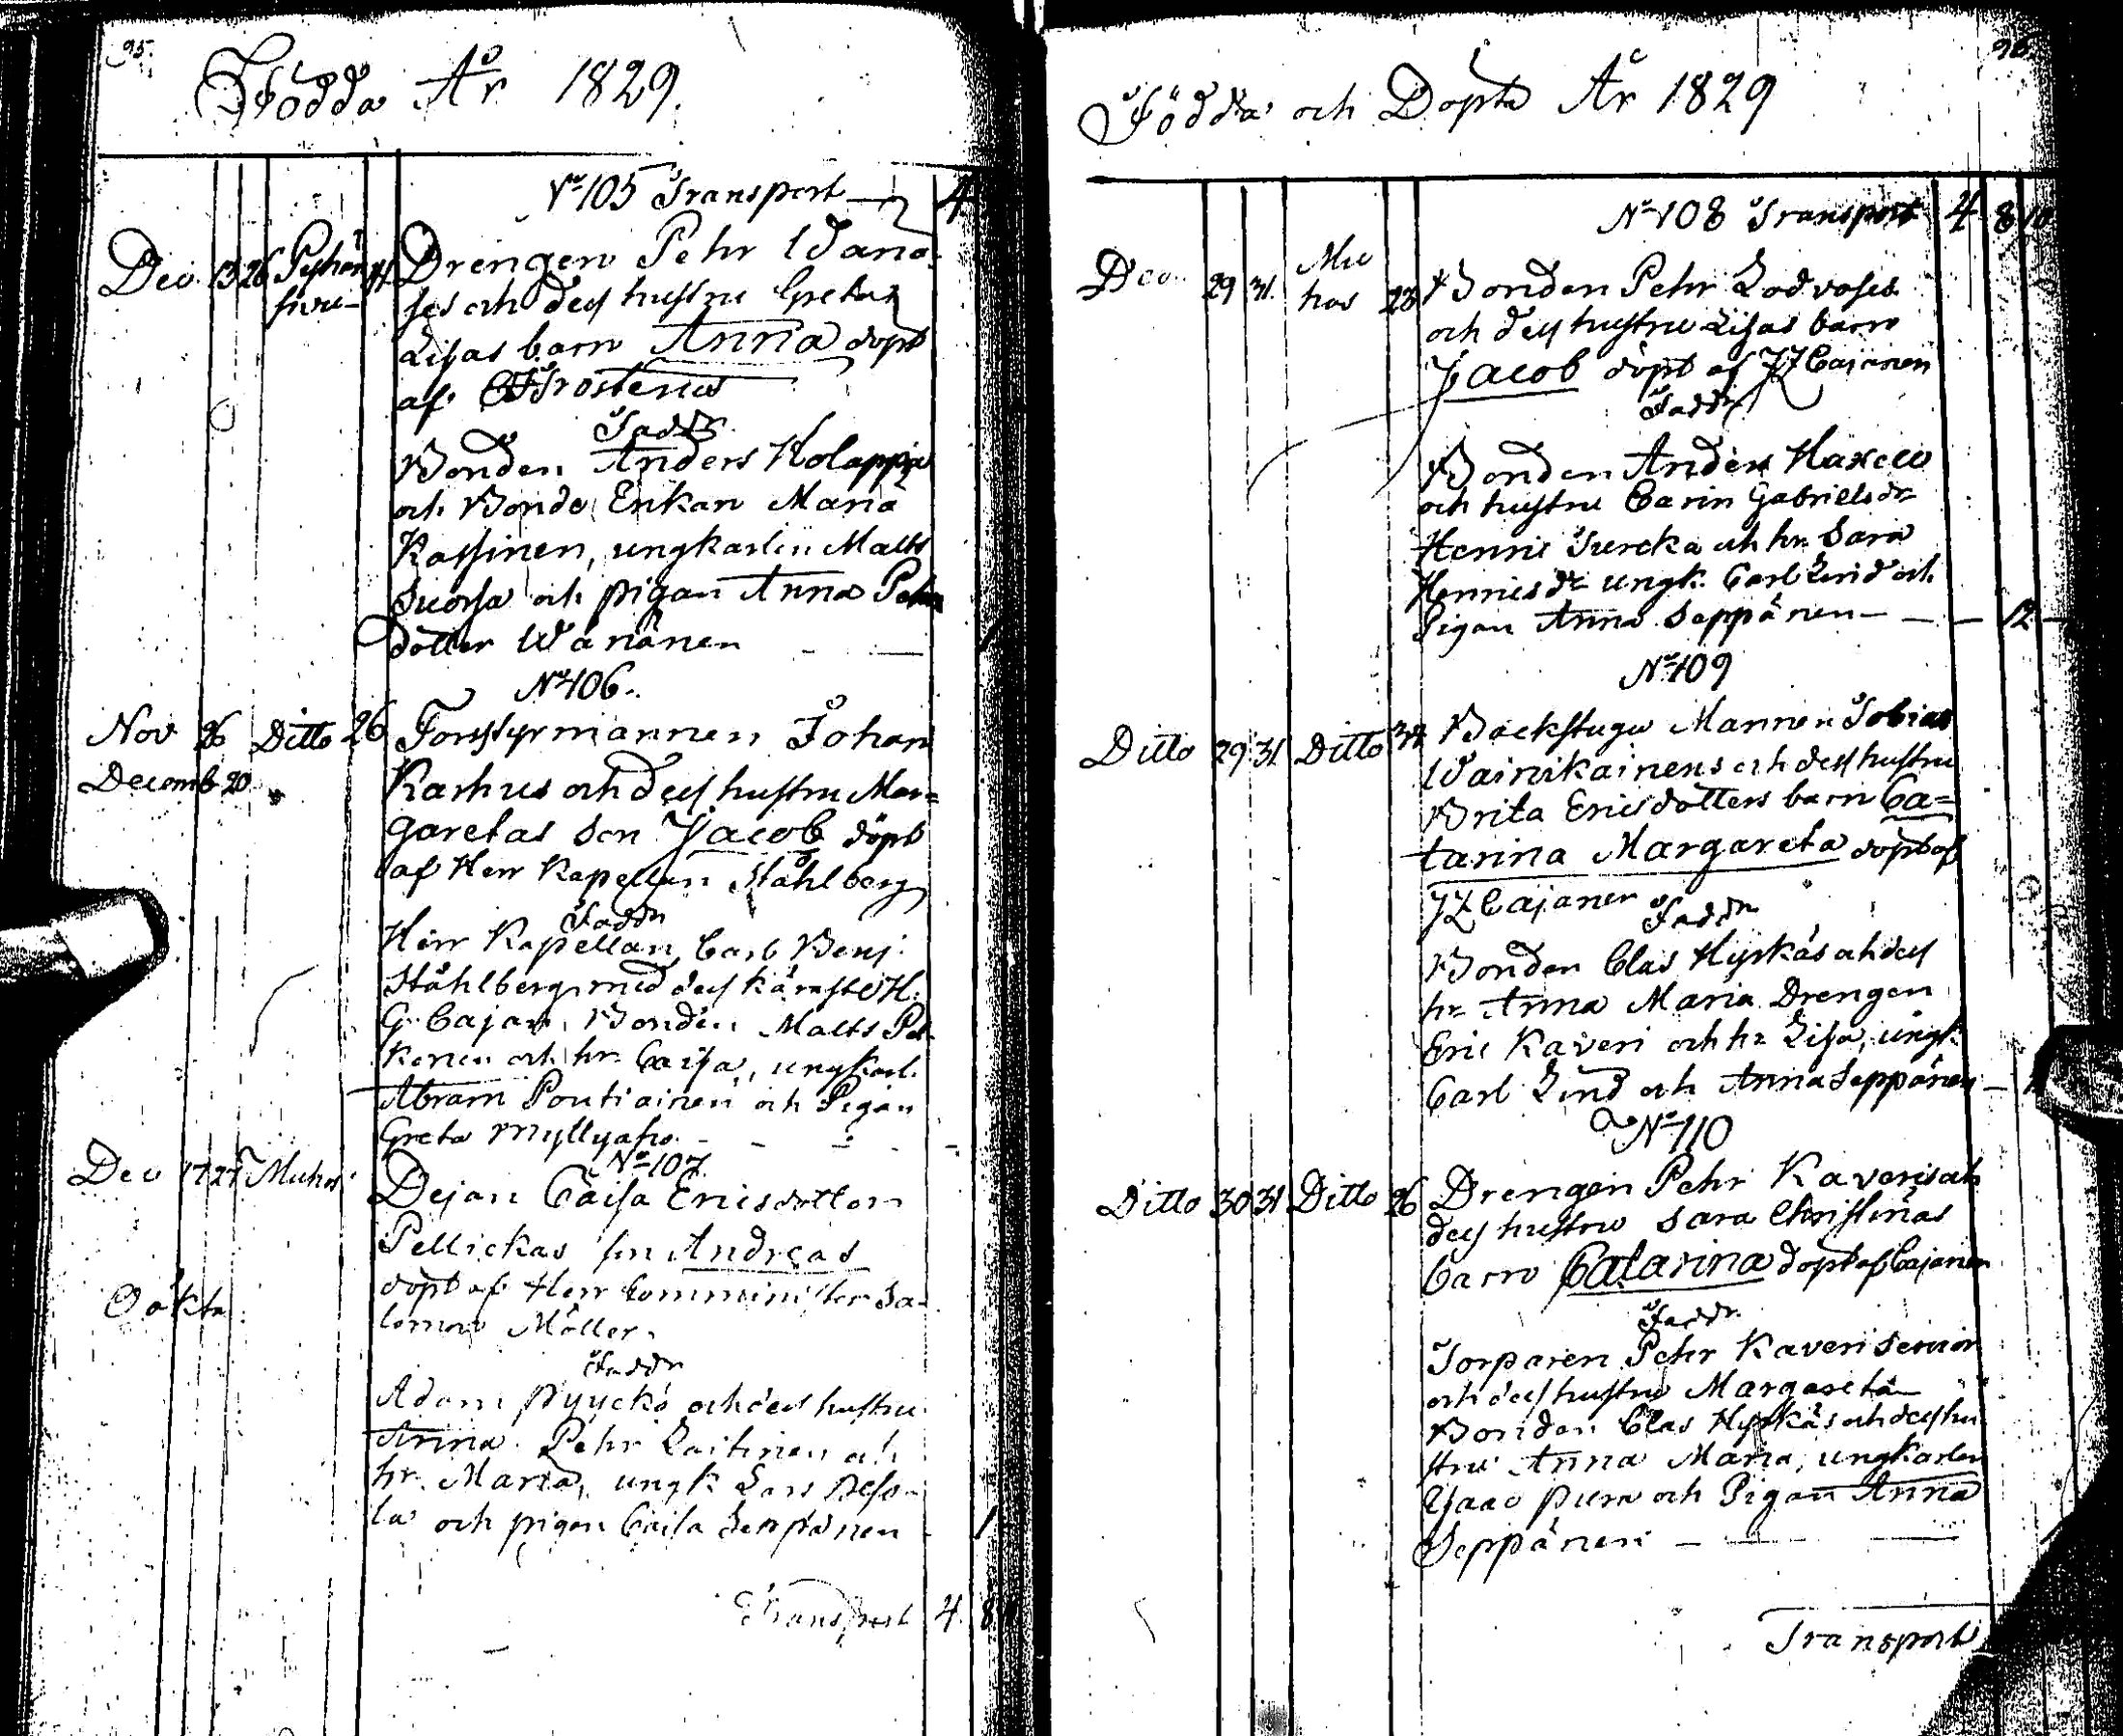 95.
Födda År 1829.
No 105 Transport 4
Dec 13 26 Pyhän Drengen Pehr Wänä-
sivu ses och dess hustru Greta
Lisas barn Anna döpt
af Frosterus
Faddr
Bonden Anders Holappa
och Bonde Enkan Maria
Kassinen, ungkarlen Matts
Suorsa och pigan Anna Pehrs
dotter Wänänen
No 106.
Nov 26 Ditto 26 Forstyrmannen Johan
Decemb 20 Karhus och dess hustru Mar=
garetas son Jacob döpt
af Herr Kapellan Ståhlberg
Faddr
Herr Kapellan Carl Benj.
Ståhlberg med dess käraste H.
G. Cajan, Bonden Matts Pel-
konen och hr Caisa, ungkarl.
Abram Poutiainen och Pigan
Greta Myllyaho.
No 107.
Dec 17 27 Muhos Dejan Caisa Ericsdotter
Pellickas son Andreas
Oäkta döpt af Herr Comminister Sa-
lomon Möller.
Faddr
Adam Pyyckö och dess hustru
Anna. Pehr Laitinen och
hr. Maria, ungk Lars
la och pigan Caisa Seppänen 1
Transport 4. 8
96
Födda och Döpta År 1829
No 108 Transport 4 8 10
Dec 29 31 Mu 28 Bonden Pehr Lodvoses
hos och dess hustru Lisas barn
Jacob döpt af JZ Cajanen
Faddr
Bonden Anders Haxell
och hustru Carin Gabrielsdr
Henric Turcka och hr Sara
Henricsdr ungk. Carl Lind och
Pigan Anna Seppänen — — 12 —
No 109
Ditto 29 31 Ditto 34 Backstugu Mannen Tobias
Wainikainens och dess hustru
Brita Ericsdotters barn Ca=
tarina Margareta döpt af
JZ Cajanen
Faddr
Bonden Clas Hyrkäs och dess
hr Anna Maria Drengen
Eric Kaveri och hr Lisa, ungk.
Carl Lind och Anna Seppänen —
No 110
Ditto 30 31 Ditto 26 Drengen Pehr Kaveris och
dess hustru Sara Christinas
barn Catarina döpt af Cajanen
Faddr
Torparen Pehr Kaveri Senior
och dess hustru Margareta
Bonden Clas Hyrkäs och dess hu
stru Anna Maria, ungkarlen
Isaac Pura och Pigan Anna
Seppänen —
Transport